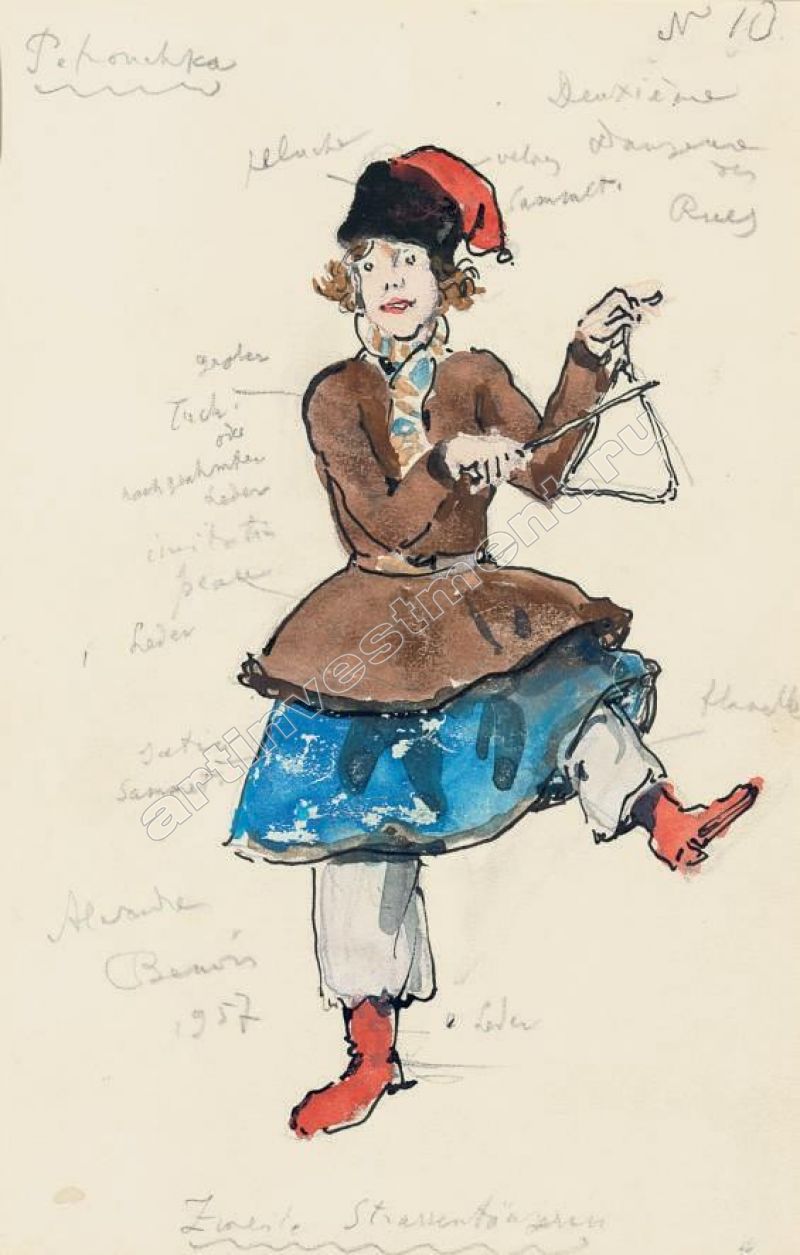 Petrouchka
N 10
Deuxième
Danseuse
des
Rues
peluche
velours
Sammet.
grober
Tuch.
oder
nachgeahmten
Leder
imitation
peau
Leder
Satin
Sammet
flanelle
Alexandre
Benois
1957
Leder
Zweite Strassentänzerin
artinvestment.ru